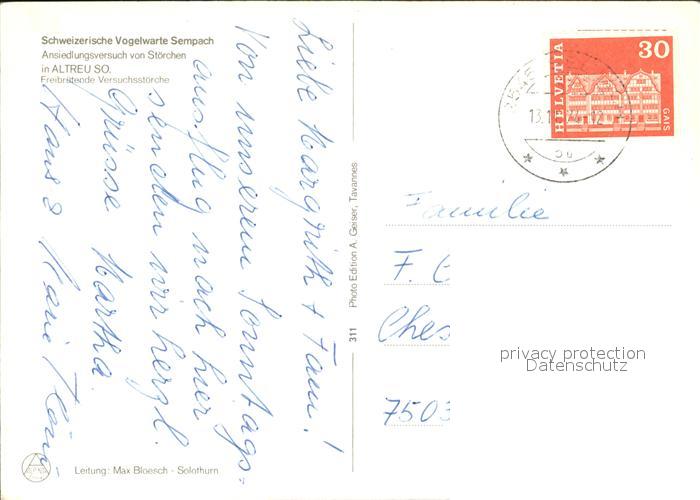 Schweizerische Vogelwarte Sempach
Ansiedlungsversuch von Störchen
in ALTREU SO.
Freibrütende Versuchsstörche
Liebe Margrith + Fam!
Von unserem Sonntags-
ausflug nach hier
senden wir herzl.
Grüsse Martha.
Hans & Hansi
311 Photo Edition A. Geiser, Tavannes
Leitung: Max Bloesch - Solothurn
HELVETIA
30
GAIS
13.1
12
Familie
F.
Ches
7503
privacy protection
Datenschutz